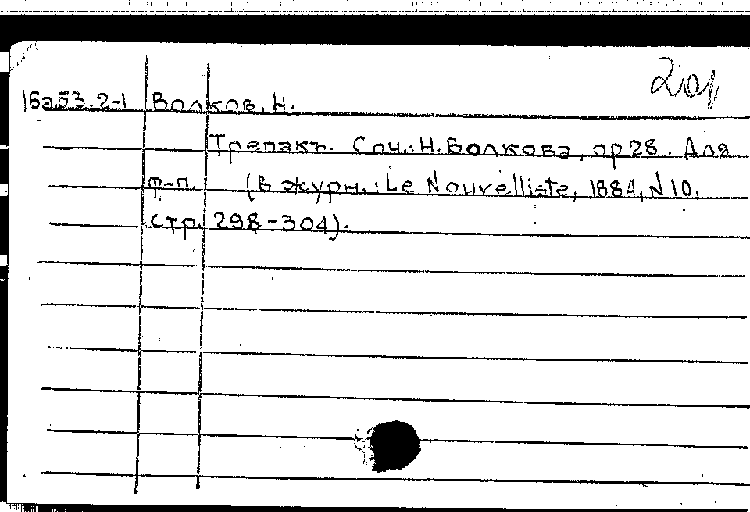 201
16а53.2-1 Волков, Н.
Трепакъ. Соч. Н. Волкова, op 28. Для
ф-п. (в журн.: Le Nouvelliste, 1884, N 10.
стр. 298-304).